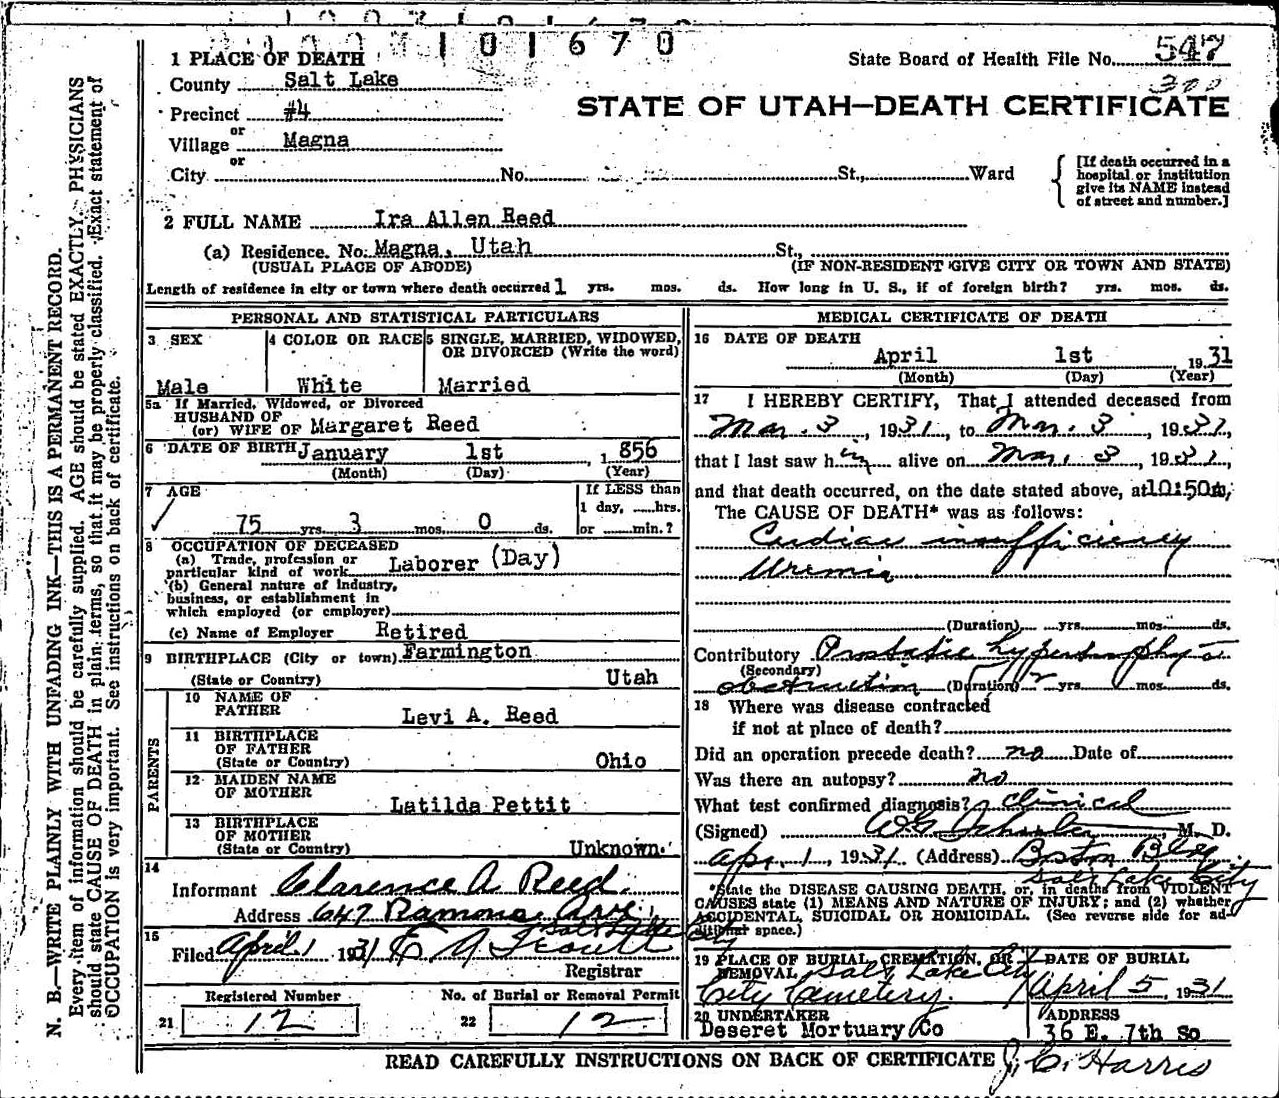 101670
1 PLACE OF DEATH
State Board of Health File No. 547
300
County Salt Lake
STATE OF UTAH—DEATH CERTIFICATE
Precinct #4
or
Village Magna
or
City No. St., Ward
[If death occurred in a hospital or institution give its NAME instead of street and number.]
2 FULL NAME Ira Allen Reed
(a) Residence. No. Magna, Utah St.,
(USUAL PLACE OF ABODE) (IF NON-RESIDENT GIVE CITY OR TOWN AND STATE)
Length of residence in city or town where death occurred 1 yrs. mos. ds. How long in U. S., if of foreign birth? yrs. mos. ds.
PERSONAL AND STATISTICAL PARTICULARS
3 SEX
Male
4 COLOR OR RACE
White
5 SINGLE, MARRIED, WIDOWED, OR DIVORCED (Write the word)
Married
5a If Married, Widowed, or Divorced
HUSBAND OF
(or) WIFE OF Margaret Reed
6 DATE OF BIRTH January 1st, 1856
(Month) (Day) (Year)
7 AGE
75 yrs. 3 mos. 0 ds.
If LESS than
1 day, ......hrs.
or ......min.?
8 OCCUPATION OF DECEASED
(a) Trade, profession or
particular kind of work Laborer (Day)
(b) General nature of industry,
business, or establishment in
which employed (or employer)
(c) Name of Employer Retired
9 BIRTHPLACE (City or town) Farmington
(State or Country) Utah
PARENTS
10 NAME OF
FATHER Levi A. Reed
11 BIRTHPLACE
OF FATHER
(State or Country) Ohio
12 MAIDEN NAME
OF MOTHER
Latilda Pettit
13 BIRTHPLACE
OF MOTHER
(State or Country) Unknown.
14
Informant Clarence A Reed.
Address 647 Ramona Ave,
Salt Lake City
15
Filed April 1 1931
Registrar
Registered Number
21 12
No. of Burial or Removal Permit
22 12
MEDICAL CERTIFICATE OF DEATH
16 DATE OF DEATH
April 1st 1931
(Month) (Day) (Year)
17 I HEREBY CERTIFY, That I attended deceased from
Mar. 3, 1931, to Mar. 3, 1931,
that I last saw him alive on Mar. 3, 1931,
and that death occurred, on the date stated above, at 10:50
The CAUSE OF DEATH* was as follows:
Cardiac insufficiency
Uremia
(Duration) yrs. mos. ds.
Contributory Prostatic hypertrophy &
(Secondary)
obstruction (Duration) yrs. mos. ds.
18 Where was disease contracted
if not at place of death?
Did an operation precede death? no Date of
Was there an autopsy? no
What test confirmed diagnosis? clinical
(Signed) M. D.
Apr. 1, 1931 (Address) Boston Bldg
Salt Lake City
*State the DISEASE CAUSING DEATH, or, in deaths from VIOLENT
CAUSES state (1) MEANS AND NATURE OF INJURY; and (2) whether
ACCIDENTAL, SUICIDAL OR HOMICIDAL. (See reverse side for additional space.)
19 PLACE OF BURIAL, CREMATION, OR
REMOVAL Salt Lake City
City Cemetery.
DATE OF BURIAL
April 5, 1931
20 UNDERTAKER
Deseret Mortuary Co
ADDRESS
36 E. 7th So
READ CAREFULLY INSTRUCTIONS ON BACK OF CERTIFICATE J. C. Harris
N. B.—WRITE PLAINLY WITH UNFADING INK—THIS IS A PERMANENT RECORD.
Every item of information should be carefully supplied. AGE should be stated EXACTLY. PHYSICIANS
should state CAUSE OF DEATH in plain terms, so that it may be properly classified. Exact statement of
OCCUPATION is very important. See instructions on back of certificate.